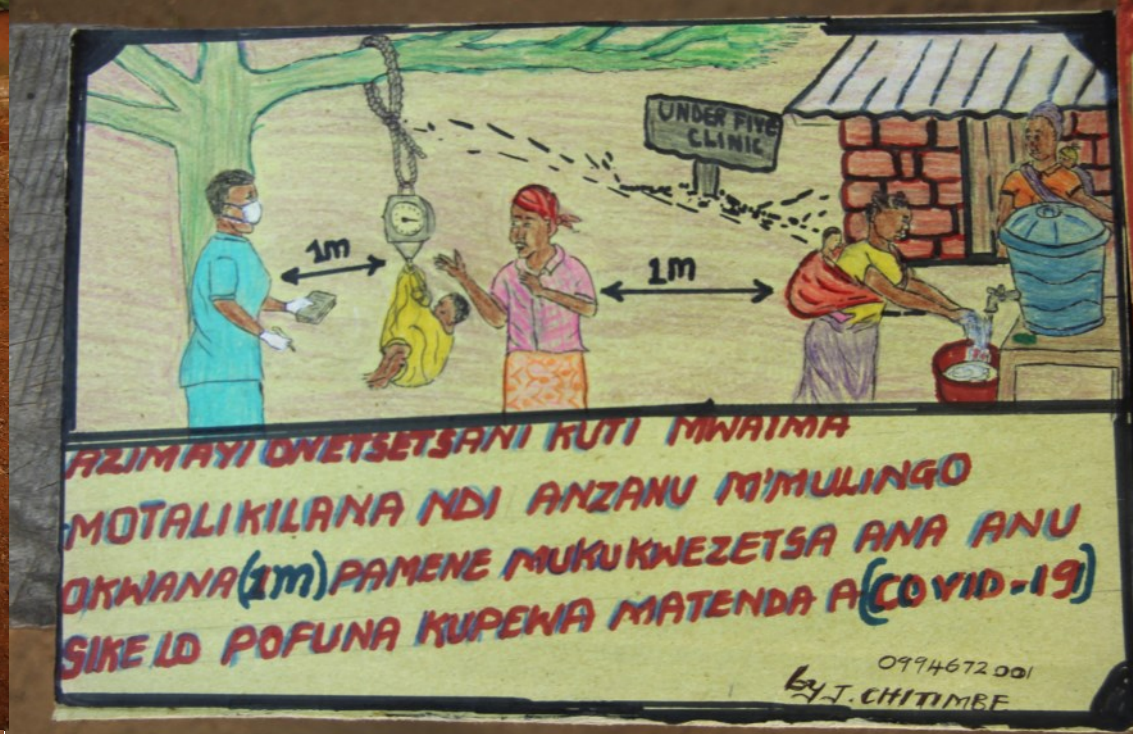 UNDER FIVE
CLINIC
1m
1m
AZIMAYI ONETSETSANI KUTI MWAIMA
MOTALIKILANA NDI ANZANU M'MULINGO
OKWANA (1m) PAMENE MUKUKWEZETSA ANA ANU
SIKELO POFUNA KUPEWA MATENDA A (COVID-19)
0994672001
by J. CHITIMBE